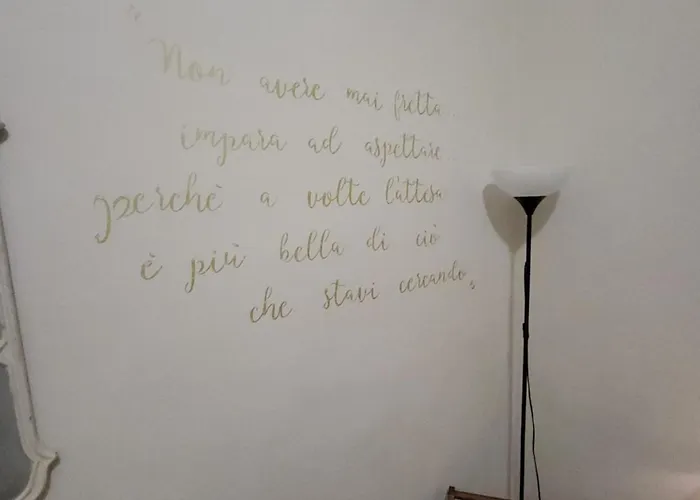 "Non avere mai fretta
impara ad aspettare
perchè a volte l'attesa
è più bella di ciò
che stavi cercando"